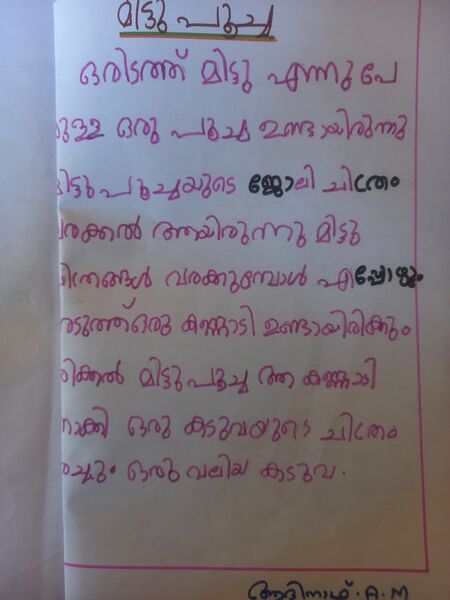 മിട്ടു പൂച്ച
ഒരിടത്ത് മിട്ടു എന്നുപേ
രുള്ള ഒരു പൂച്ച ഉണ്ടായിരുന്നു.
മിട്ടു പൂച്ചയുടെ ജോലി ചിത്രം
വരക്കൽ ആയിരുന്നു മിട്ടു
ചിത്രങ്ങൾ വരക്കുമ്പോൾ എപ്പോഴും
അടുത്ത് ഒരു കണ്ണാടി ഉണ്ടായിരിക്കും
ഒരിക്കൽ മിട്ടു പൂച്ച ആ കണ്ണാടി
നോക്കി ഒരു കടുവയുടെ ചിത്രം
ഒരു വലിയ കടുവ.
ആദിനാഥ്. A. M